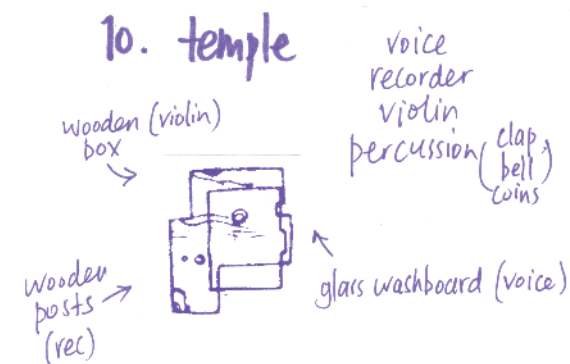 10. temple
voice
recorder
violin
percussion (clap,
bell
coins)
wooden (violin)
box
wooden
posts
(rec)
glass washboard (voice)